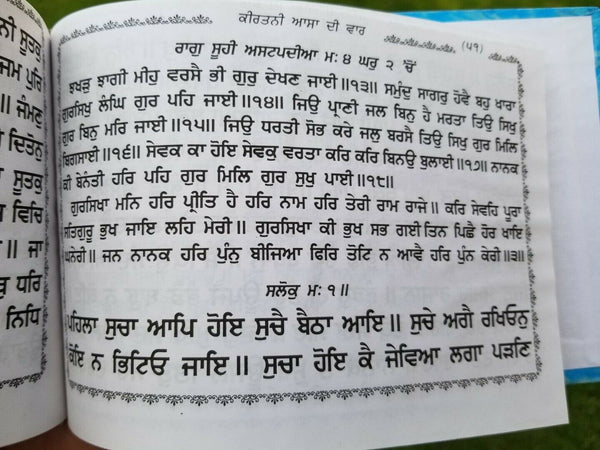 ਨੀ ਸੂਤਕੁ
ਜਮ ਪੁਰਿ
ਜੰਮਣੁ
ਦਿਤੋਨੁ
ਸੂਤਕੁ
ਵਿਚਿ
॥ ਜਾ
ਧਰਿ
ਨਿਧਿ
ਕੀਰਤਨੀ ਆਸਾ ਦੀ ਵਾਰ
(੫੧)
ਰਾਗੁ ਸੂਹੀ ਅਸਟਪਦੀਆ ਮ: ੪ ਘਰੁ ੨ 'ਚੋਂ
ਝਖੜੁ ਝਾਗੀ ਮੀਹੁ ਵਰਸੈ ਭੀ ਗੁਰੁ ਦੇਖਣ ਜਾਈ॥੧੩॥ ਸਮੁੰਦੁ ਸਾਗਰੁ ਹੋਵੈ ਬਹੁ ਖਾਰਾ
ਗੁਰਸਿਖੁ ਲੰਘਿ ਗੁਰ ਪਹਿ ਜਾਈ॥੧੪॥ ਜਿਉ ਪ੍ਰਾਣੀ ਜਲ ਬਿਨੁ ਹੈ ਮਰਤਾ ਤਿਉ ਸਿਖੁ
ਗੁਰ ਬਿਨੁ ਮਰਿ ਜਾਈ॥੧੫॥ ਜਿਉ ਧਰਤੀ ਸੋਭ ਕਰੇ ਜਲੁ ਬਰਸੈ ਤਿਉ ਸਿਖੁ ਗੁਰ ਮਿਲਿ
ਬਿਗਸਾਈ॥੧੬॥ ਸੇਵਕ ਕਾ ਹੋਇ ਸੇਵਕੁ ਵਰਤਾ ਕਰਿ ਕਰਿ ਬਿਨਉ ਬੁਲਾਈ॥੧੭॥ ਨਾਨਕ
ਕੀ ਬੇਨੰਤੀ ਹਰਿ ਪਹਿ ਗੁਰ ਮਿਲਿ ਗੁਰ ਸੁਖੁ ਪਾਈ॥੧੮॥
ਗੁਰਸਿਖਾ ਮਨਿ ਹਰਿ ਪ੍ਰੀਤਿ ਹੈ ਹਰਿ ਨਾਮ ਹਰਿ ਤੇਰੀ ਰਾਮ ਰਾਜੇ॥ ਕਰਿ ਸੇਵਹਿ ਪੂਰਾ
ਸਤਿਗੁਰੂ ਭੁਖ ਜਾਇ ਲਹਿ ਮੇਰੀ॥ ਗੁਰਸਿਖਾ ਕੀ ਭੁਖ ਸਭ ਗਈ ਤਿਨ ਪਿਛੈ ਹੋਰ ਖਾਇ
ਘਨੇਰੀ॥ ਜਨ ਨਾਨਕ ਹਰਿ ਪੁੰਨੁ ਬੀਜਿਆ ਫਿਰਿ ਤੋਟਿ ਨ ਆਵੈ ਹਰਿ ਪੁੰਨ ਕੇਰੀ॥੩॥
ਸਲੋਕੁ ਮ: ੧॥
ਪਹਿਲਾ ਸੁਚਾ ਆਪਿ ਹੋਇ ਸੁਚੈ ਬੈਠਾ ਆਇ॥ ਸੁਚੇ ਅਗੈ ਰਖਿਓਨੁ
ਕੋਇ ਨ ਭਿਟਿਓ ਜਾਇ॥ ਸੁਚਾ ਹੋਇ ਕੈ ਜੇਵਿਆ ਲਗਾ ਪੜਣਿ